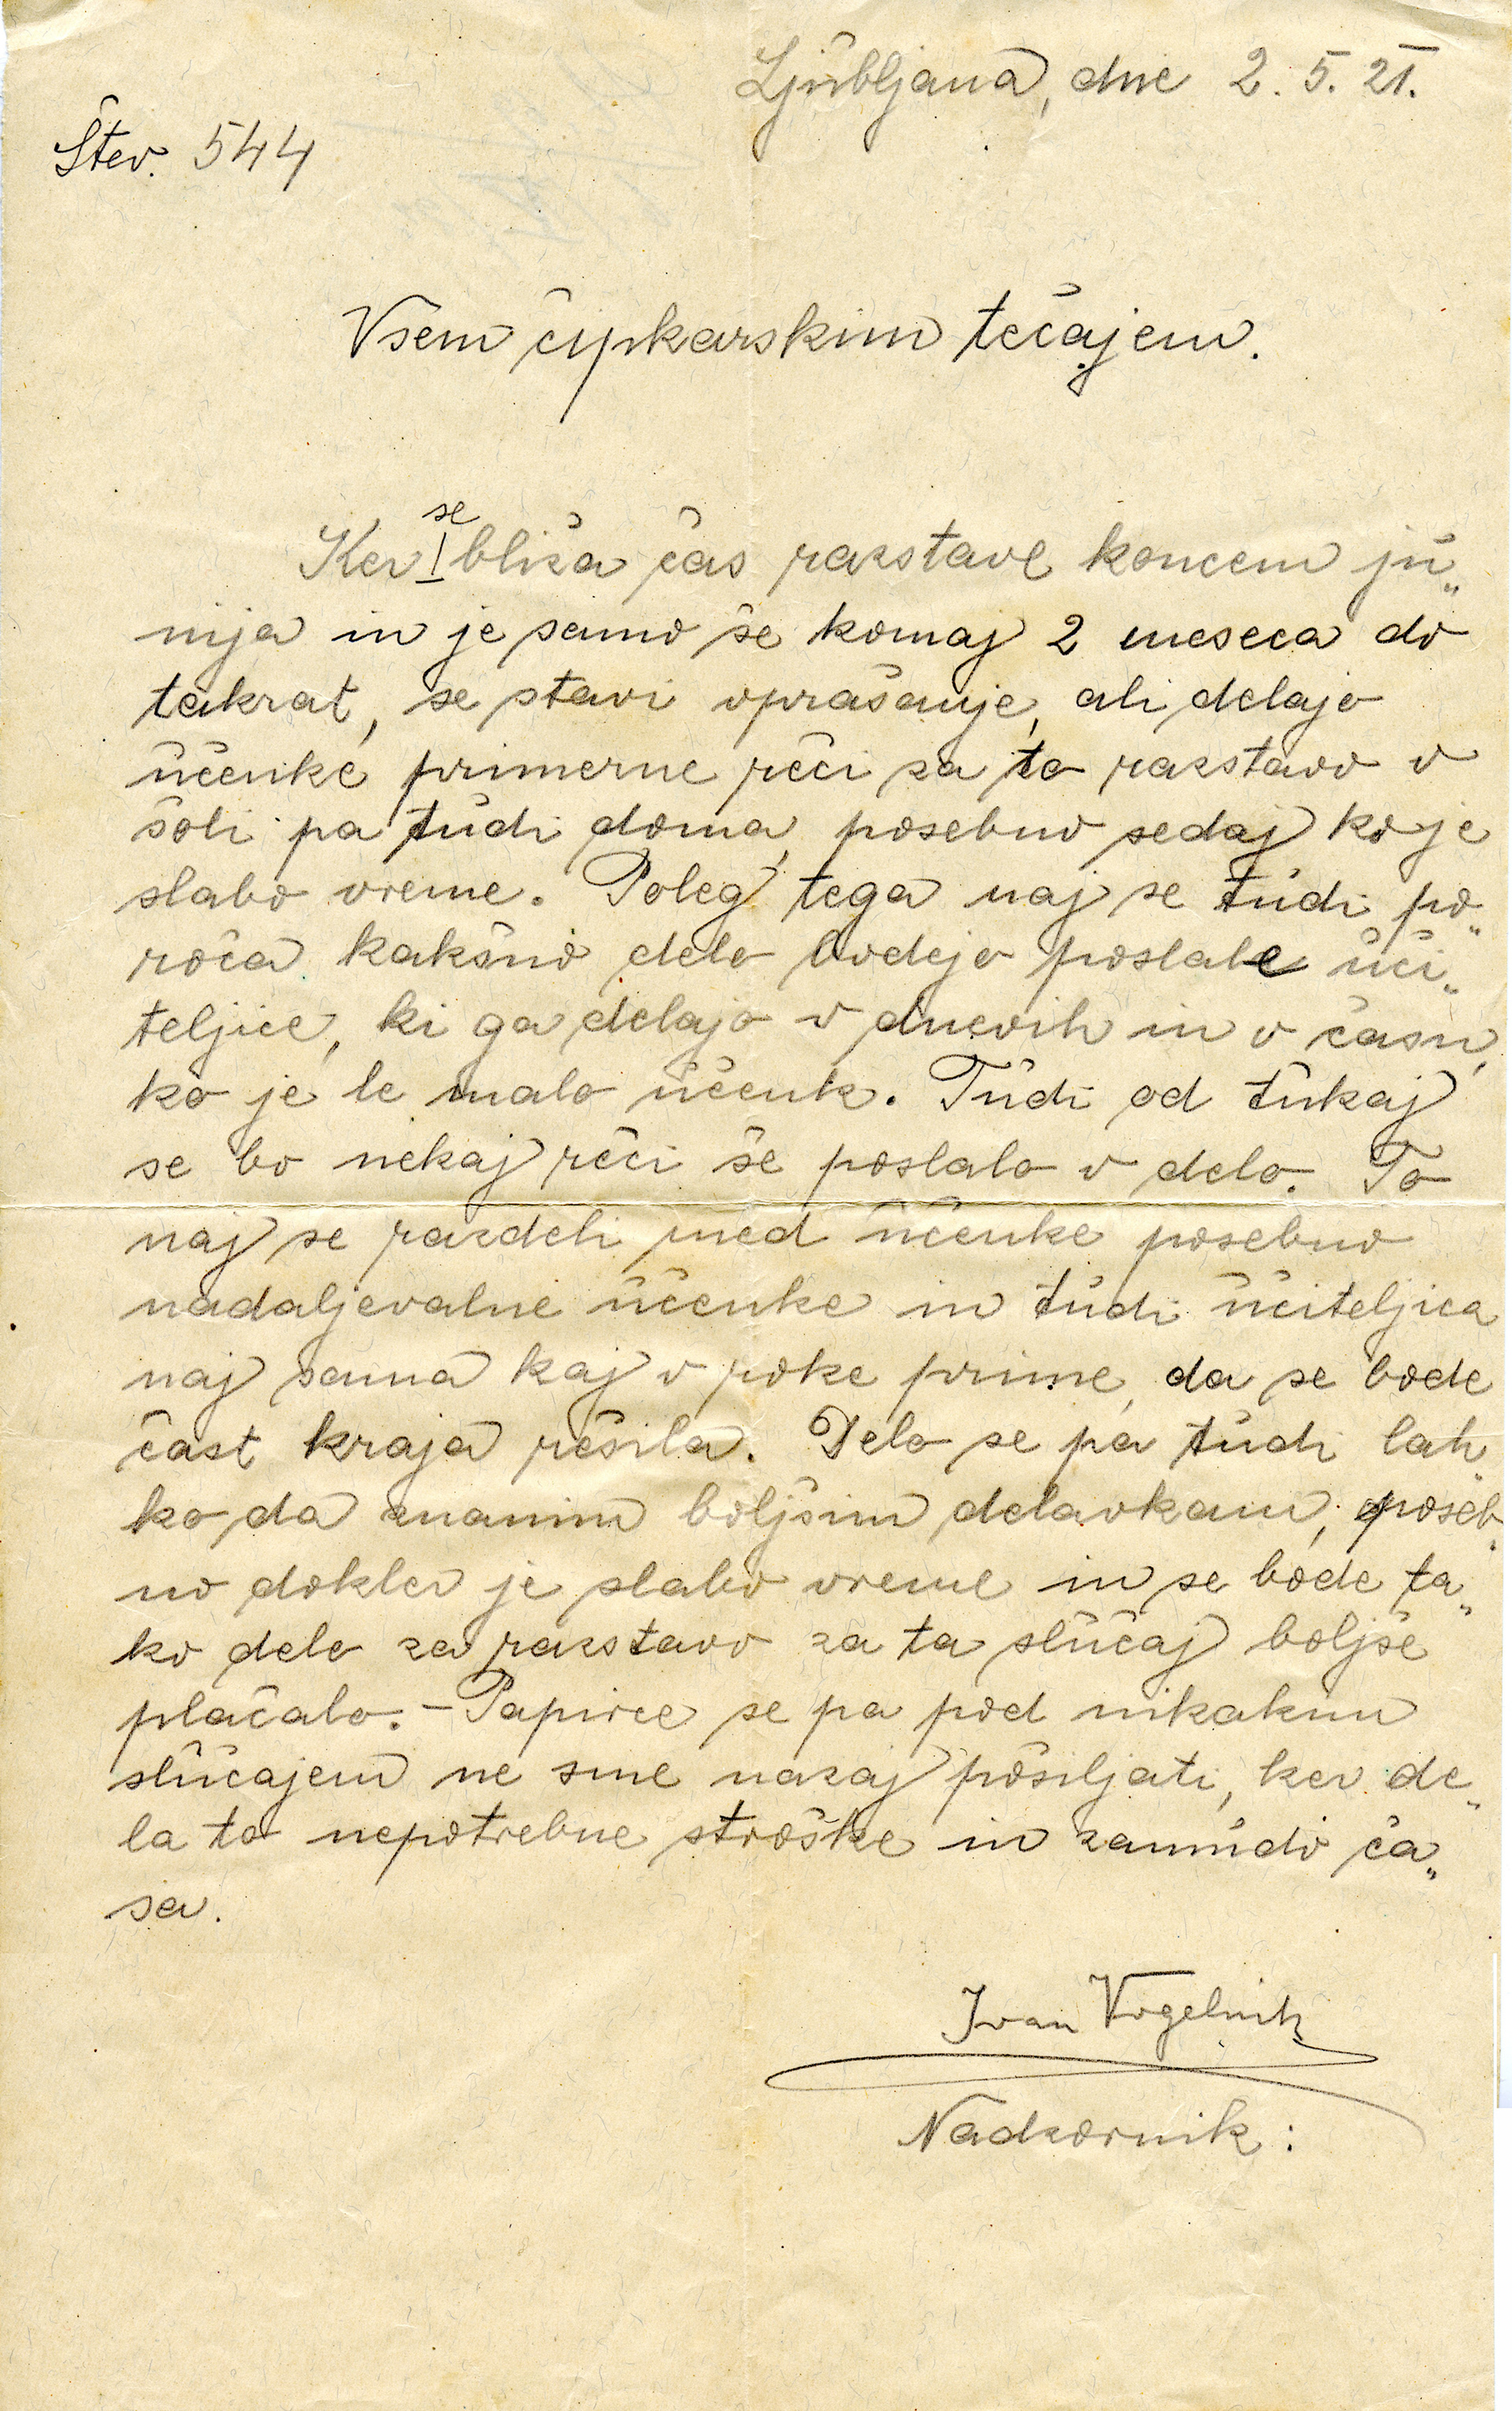 Ljubljana, dne 2. 5. 21.
Štev. 544
Vsem čipkarskim tečajem.
Ker se bliža čas razstave koncem ju„
nija in je samo še komaj 2 meseca do
takrat, se stavi vprašanje, ali delajo
učenke primerne reči za to razstavo v
šoli pa tudi doma, posebno sedaj ko je
slabo vreme. Poleg tega naj se tudi po„
roča kakšno delo bodejo poslale uči„
teljice, ki ga delajo v dnevih in v času,
ko je le malo učenk. Tudi od tukaj
se bo nekaj reči še poslalo v delo. To
naj se razdeli med učenke posebno
nadaljevalne učenke in tudi učiteljica
naj sama kaj v roke prime, da se bode
čast kraja rešila. Delo se pa tudi lah„
ko da znanim boljšim delavkam, poseb„
no dokler je slabo vreme in se bode ta„
ko delo za razstavo za ta slučaj boljše
plačalo. – Papirce se pa pod nikakim
slučajem ne sme nazaj pošiljati, ker de„
la to nepotrebne stroške in zamudo ča„
sa.
Ivan Vogelnik
Nadzornik: